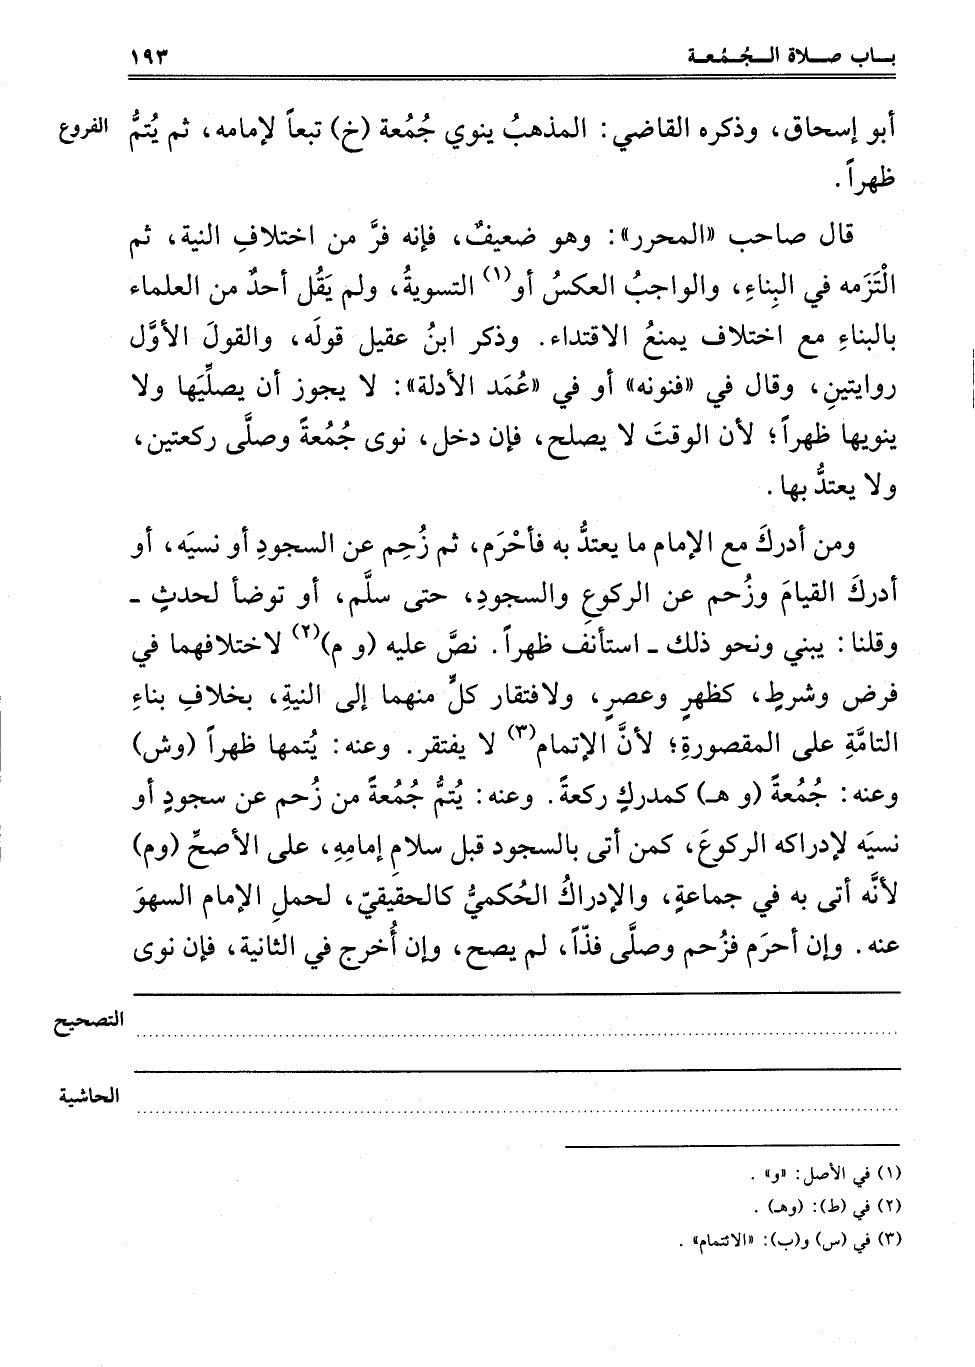 بـاب صـلاة الـجُـمُـعـة ١٩٣
أبو إسحاق، وذكره القاضي: المذهبُ ينوي جُمُعة (خ) تبعاً لإمامه، ثم يُتمُّ الفروع
ظهراً.
قال صاحب «المحرر»: وهو ضعيفٌ، فإنه فرَّ من اختلافِ النية، ثم
الْتَزَمه في البِناءِ، والواجبُ العكسُ أو(١) التسويةُ، ولم يَقُل أحدٌ من العلماء
بالبناءِ مع اختلاف يمنعُ الاقتداء. وذكر ابنُ عقيل قولَه، والقولَ الأوَّل
روايتينِ، وقال في «فنونه» أو في «عُمَد الأدلة»: لا يجوز أن يصلِّيَها ولا
ينويها ظهراً؛ لأن الوقتَ لا يصلح، فإن دخل، نوى جُمُعةً وصلَّى ركعتين،
ولا يعتدُّ بها.
ومن أدركَ مع الإمام ما يعتدُّ به فأحْرَم، ثم زُحِم عن السجودِ أو نسيَه، أو
أدركَ القيامَ وزُحم عن الركوعِ والسجودِ، حتى سلَّم، أو توضأ لحدثٍ ـ
وقلنا: يبني ونحو ذلك ـ استأنف ظهراً. نصَّ عليه (و م)(٢) لاختلافهما في
فرض وشرطٍ، كظهرٍ وعصرٍ، ولافتقار كلٍّ منهما إلى النيةِ، بخلافِ بناءِ
التامَّةِ على المقصورةِ؛ لأنَّ الإتمام(٣) لا يفتقر. وعنه: يُتمها ظهراً (وش)
وعنه: جُمُعةً (و هـ) كمدركٍ ركعةً. وعنه: يُتمُّ جُمُعةً من زُحم عن سجودٍ أو
نسيَه لإدراكه الركوعَ، كمن أتى بالسجود قبل سلامِ إمامِهِ، على الأصحِّ (وم)
لأنَّه أتى به في جماعةٍ، والإدراكُ الحُكميُّ كالحقيقيّ، لحملِ الإمام السهوَ
عنه. وإن أحرَم فزُحم وصلَّى فذّاً، لم يصح، وإن أُخرج في الثانية، فإن نوى
التصحيح
الحاشية
(١) في الأصل: «و».
(٢) في (ط): (وهـ).
(٣) في (س) و(ب): «الائتمام».